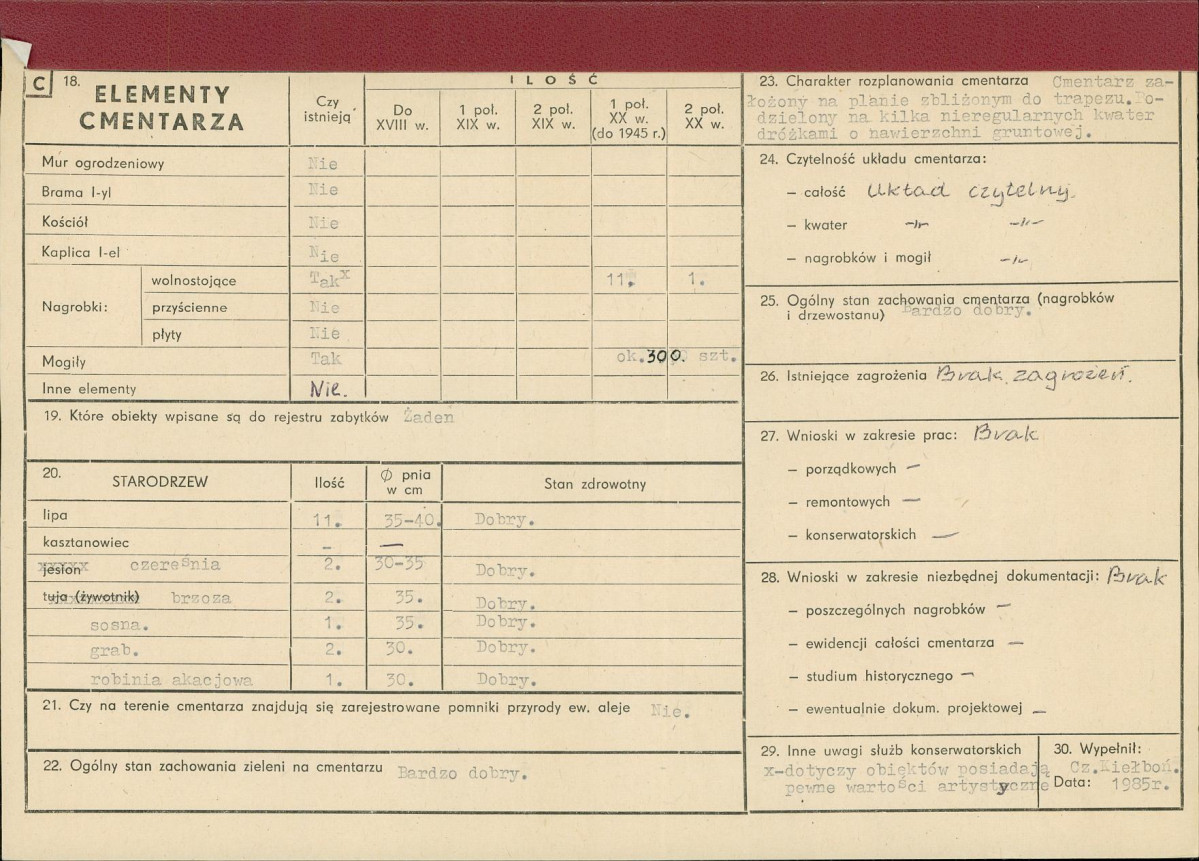 C 18. ELEMENTY CMENTARZA
Czy istnieją
ILOŚĆ
Do XVIII w.
1 poł. XIX w.
2 poł. XIX w.
1 poł. XX w. (do 1945 r.)
2 poł. XX w.
Mur ogrodzeniowy Nie
Brama I-yl Nie
Kościół Nie
Kaplica I-el Nie
Nagrobki:
wolnostojące Takx 11. 1.
przyścienne Nie
płyty Nie
Mogiły Tak ok.300. szt.
Inne elementy Nie.
19. Które obiekty wpisane są do rejestru zabytków Żaden
20. STARODRZEW Ilość Ø pnia w cm Stan zdrowotny
lipa 11. 35-40. Dobry.
kasztanowiec – —
jesion czereśnia 2. 30-35 Dobry.
tuja (żywotnik) brzoza 2. 35. Dobry.
sosna. 1. 35. Dobry.
grab. 2. 30. Dobry.
robinia akacjowa 1. 30. Dobry.
21. Czy na terenie cmentarza znajdują się zarejestrowane pomniki przyrody ew. aleje Nie.
22. Ogólny stan zachowania zieleni na cmentarzu Bardzo dobry.
23. Charakter rozplanowania cmentarza Cmentarz za-
łożony na planie zbliżonym do trapezu.Po-
dzielony na kilka nieregularnych kwater
dróżkami o nawierzchni gruntowej.
24. Czytelność układu cmentarza:
– całość Układ czytelny.
– kwater -//- -//-
– nagrobków i mogił -//-
25. Ogólny stan zachowania cmentarza (nagrobków
i drzewostanu) Bardzo dobry.
26. Istniejące zagrożenia Brak zagrożeń.
27. Wnioski w zakresie prac: Brak
– porządkowych –
– remontowych —
– konserwatorskich —
28. Wnioski w zakresie niezbędnej dokumentacji: Brak
– poszczególnych nagrobków —
– ewidencji całości cmentarza —
– studium historycznego —
– ewentualnie dokum. projektowej —
29. Inne uwagi służb konserwatorskich
x-dotyczy obiektów posiadają
pewne wartości artystyczne
30. Wypełnił:
Cz.Kiełboń.
Data: 1985r.